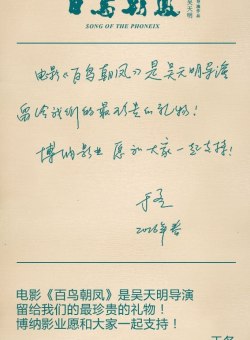 百鸟朝凤
SONG OF THE PHONEIX
吴天明
电影《百鸟朝凤》是吴天明导演
留给我们的最珍贵的礼物!
博纳影业愿和大家一起支持!
于冬
2016年春
电影《百鸟朝凤》是吴天明导演
留给我们的最珍贵的礼物!
博纳影业愿和大家一起支持!